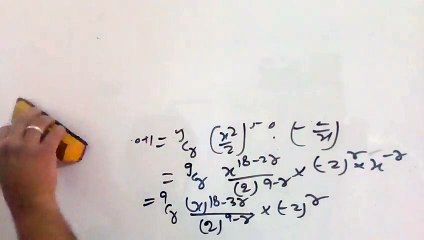 0+1 = ⁹Cᵣ (x²/2)⁵⁻⁰ · (-2/x)
= ⁹Cᵣ x¹⁸⁻²ʳ/(2)⁹⁻ʳ × (-2)ʳ × x⁻ʳ
= ⁹Cᵣ (x)¹⁸⁻³ʳ/(2)⁹⁻ʳ × (-2)ʳ